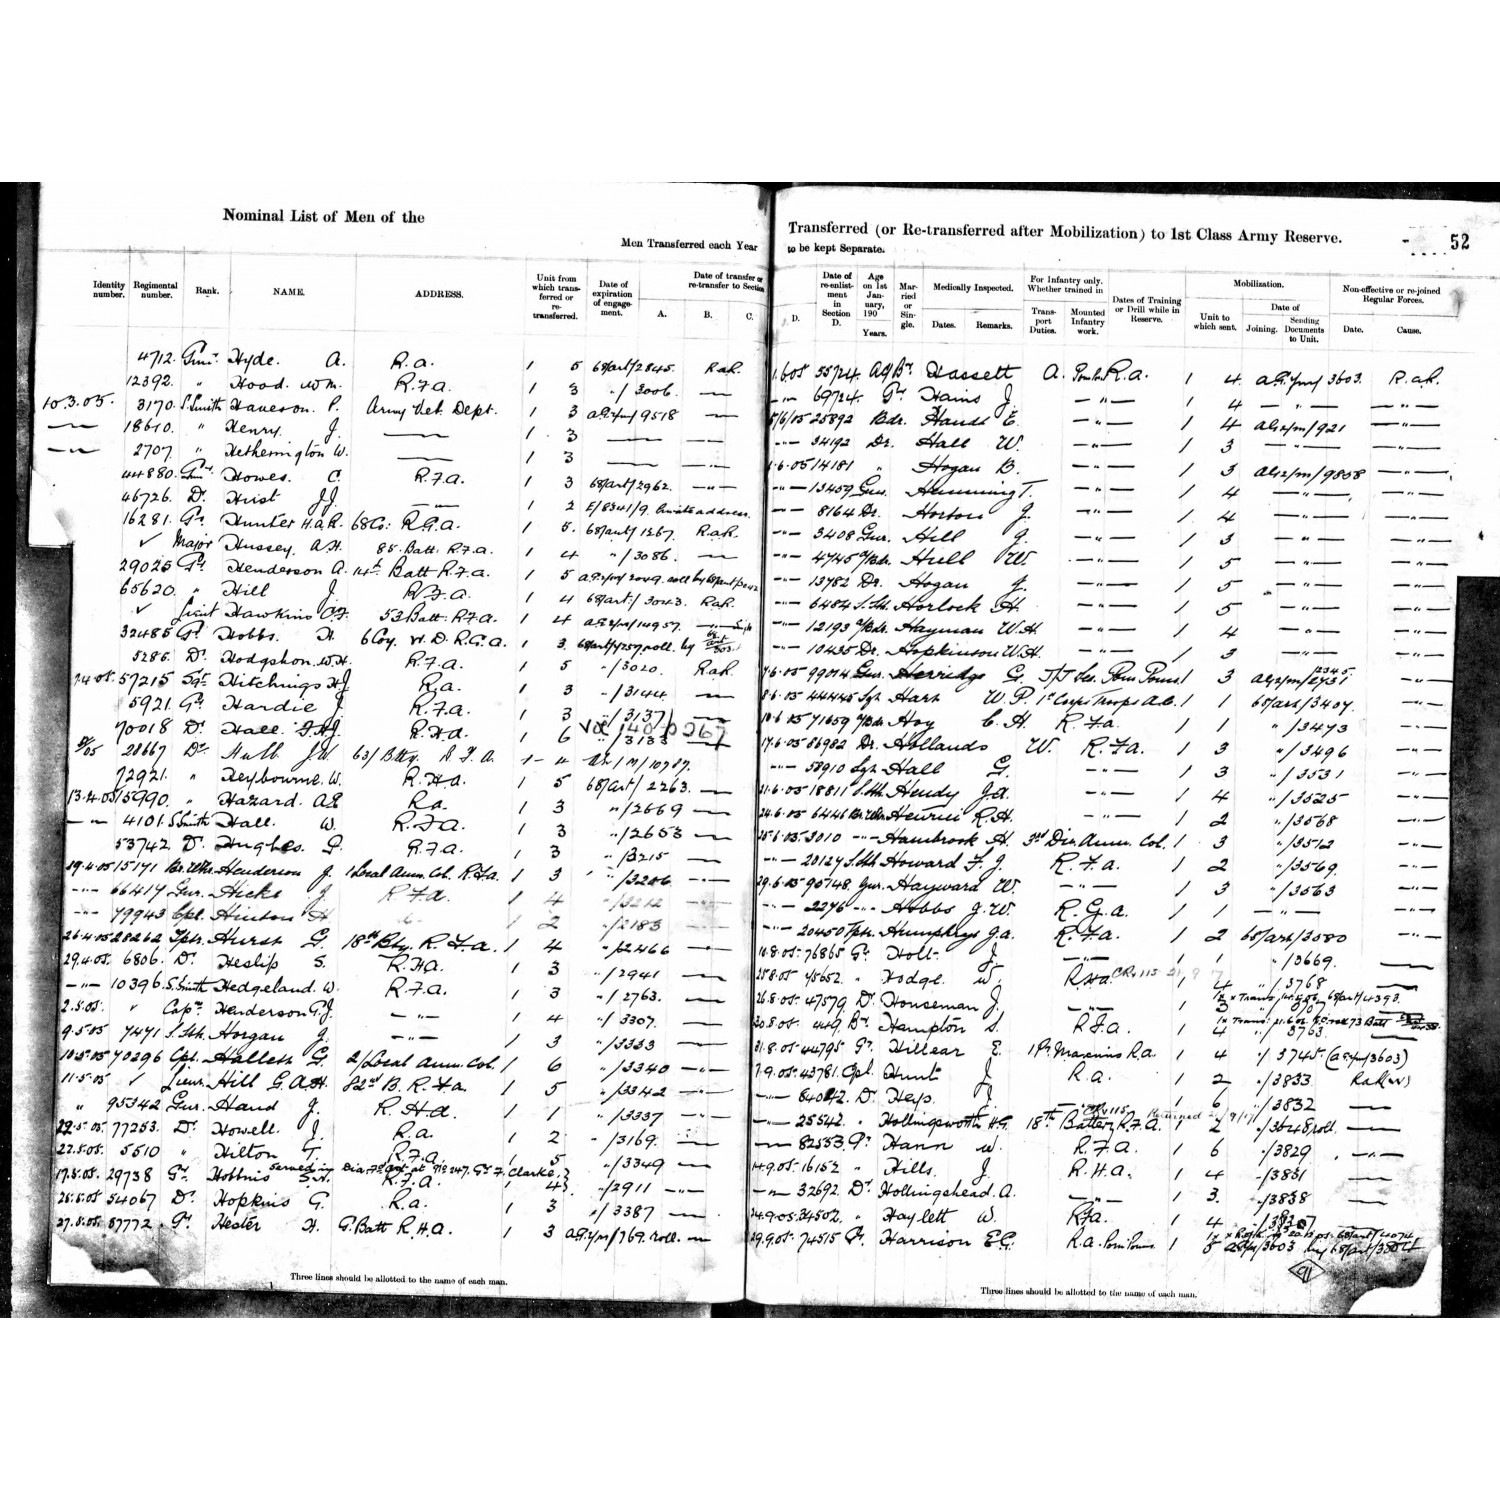 Nominal List of Men of the
Men Transferred each Year
Identity number. Regimental number. Rank. NAME. ADDRESS. Unit from which transferred or re-transferred. Date of expiration of engagement. Date of transfer or re-transfer to Section A. B. C.
4712. Hyde. A. R.a. 1 5 68/art/2845. RaR.
12392. " Hood. Wm. R.F.a. 1 3 "/3006. —
10.3.05. 3170. S.Smith P. Army Vet. Dept. 1 3 9518 —
— 18610. " Henry. J. — 1 3 — —
— 2707. " Hetherington W. — 1 3 — —
44880. Howes. C. R.F.a. 1 3 68/art/2962. —"—
46726. Dr. Hirst J.J. — 1 2 E/8341/9. Private address.
16281. Gr. Hunter H.a.R. 68 Co: R.G.a. 1 5. 68/art/1267. RaR.
✓ Major Hussey. A.H. 85. Batt. R.F.a. 1 4 "/3086. —
29025 Gr. Henderson A. 14th Batt R.F.a. 1 5
65620. " Hill J. R.F.a. 1 4 68/art/3043. RaR.
✓ Lieut Hawkins 53 Batt. R.F.a. 1 4 14957.
32485 Gr. Hobbs. H. 6 Coy. W.D. R.G.a. 1 3
5286. Dr. Hodgshon. W.H. R.F.a. 1 5 "/3020. RaR.
57215 Sgt. Hitchings H.J R.a. 1 3 "/3144 —
5921. Gr. Hardie J. R.F.a. 1 3 "/3137 —
70018 Dr. Hall. R.H.a. 1 6 "/3133 —
28667 Dr. J.W. 63/Btty. R.F.a.
72921. " Heybourne. W. R.H.a. 1 5 68/art/2263. —
13.4.05 15990. " Hazard. A.E R.a. 1 3 "/2669 —
—"— 4101. S.Smith Hall. W. R.F.a. 1 3 "/2653 —
53742. Dr. Hughes. P. R.F.a. 1 3 "/3215 —
29.4.05 15171 Henderson J. 1 Local Amm. Col. R.F.a. 1 3 "/3206 —
—"— 66417 Gnr. Hicks J R.F.a. 1 4 "/3212 —
—"— 79943 Cpl. Hinton H 1 2 "/2183 —
26.4.05 28262 Tptr. Hurst G. 18th Bty. R.F.a. 1 4 "/2466 —
29.4.05 6806. Dr. Heslip S. R.H.a. 1 3 "/2941 —
—"— 10396. S.Smith Hedgeland. W. R.F.a. 1 3 "/2763. —
2.5.05. " Capn. Henderson G.J. —"— 1 4 "/3307. —
9.5.05 7471 S.Sth. Horgan J. —"— 1 3 "/3333 —
10.5.05 70296 Cpl. Hallett G. 2/Local Amm. Col. 1 6 "/3340 —
11.5.05 ✓ Lieut. Hill G.A.H 82nd B. R.F.a. 1 5 "/3342 —
" 95342 Gnr. Hand J. R.H.a. 1 1 "/3337 —
22.5.05 77253. Dr. Howell. J. R.a. 1 2 "/3169. —
22.5.05. 5510 " Hilton T. R.F.a. 1 5 "/3349 —
17.5.05. 29738 Gr. Hobbins S.H. R.F.a. 1 4 "/2911 —"—
54067 Dr. Hopkins G. R.a. 1 3 "/3387 —
27.5.05. 57772. Gr. Hester H. G. Batt R.H.a. 1 3 769. roll. —
Three lines should be allotted to the name of each man.
Transferred (or Re-transferred after Mobilization) to 1st Class Army Reserve. 52
to be kept Separate.
D. Date of re-enlistment in Section D. Age on 1st January, 190 Years. Married or Single. Medically Inspected. Dates. Remarks. For Infantry only. Whether trained in Transport Duties. Mounted Infantry work. Dates of Training or Drill while in Reserve. Mobilization. Unit to which sent. Date of Joining. Sending Documents to Unit. Non-effective or re-joined Regular Forces. Date. Cause.
1.6.05 55724. Hassett A. R.a. 1 4. 3603. R.aR.
—"— 69724. Gr. Hains J. —"— 1 4 —"— —"—
5/6/05 25892 Bdr. Hands E. —"— 1 4 —"—
—"— 34192 Dr. Hall W. —"— 1 3 —"— —"—
1.6.05 14181 " Hogan B. —"— 1 3 9808 —"—
—"— 13459 Gnr. Hemming T. —"— 1 4 —"— —"—
—"— 8164 Dr. Horton J. —"— 1 4 —"— —"—
—"— 3408 Gnr. Hill J. —"— 1 3 —"— —"—
—"— 4745 Hull W. —"— 1 5 —"— —"—
—"— 13782 Dr. Hogan J. —"— 1 5 —"— —"—
—"— 6484 S.Sth. Horlock H. —"— 1 5 —"— —"—
—"— 12193 Hayman W.H. —"— 1 4 —"— —"—
—"— 10435 Dr. Hopkinson W.H. —"— 1 3 —"— —"—
7.6.05 99014 Gnr. Herridge G. Pom Poms. 1 3 —"—
8.6.05 44445 Sgt. Hart W.P. 1st Corps Troops A.C. 1 1 68/art/3407. —"—
10.6.05 71659 Hoy C.H. R.F.a. 1 1 "/3473 —"—
17.6.05 86982 Dr. Hollands W. R.F.a. 1 3 "/3496 —"—
—"— 58910 Sgt. Hall G. —"— 1 3 "/3531 —"—
21.6.05 18811 S.Sth. Hendy J.a. —"— 1 4 "/3525 —"—
24.6.05 6446 R.H. —"— 1 2 "/3568 —"—
25.6.05 3010 —"— Hambrook H. 3rd Div. Amm. Col. 1 3 "/3512 —"—
—"— 20127 S.Sth. Howard F.J. R.F.a. 1 2 "/3569. —"—
29.6.05 90748. Gnr. Hayward W. —"— 1 3 "/3563 —"—
—"— 2276 —"— Hobbs J.W. R.G.a. 1 1 —"— —"—
—"— 20450 Tptr. Humphrys J.a. R.F.a. 1 2 68/art/3580 —"—
76865 Gr. Holt. J. —"— 1 1 "/3669. —
25.8.05. 45652. " Hodge. W. R.H.a. 1 4 "/3768 —
26.8.05. 47579 Dr. Houseman J. —"— 1
30.8.05. 449 Br. Hampton S. R.F.a. 1 4 "/3763.
31.8.05. 44795 Gr. Hillear E. R.a. 1 4 "/3745. (3603)
7.9.05. 43781. Cpl. Hunt J. R.a. 1 2 "/3833
—"— Dr. Heys. J. —"— 1 6 "/3832 —
—"— 25542. " Hollingworth H.G. 18th Battery R.F.a. 1 2 "/3648 roll. —
—"— 82553 Gr. Hann W. R.F.a. 1 6 "/3829 —"—
14.9.05. 16152 " Hills. J. R.H.a. 1 4 "/3831 —
—"— 32692 Dr. Hollingshead. A. —"— 1 3. "/3838 —
24.9.05. 34502. " Haylett W. R.F.a. 1 4
29.9.05. 74515 Gr. Harrison E.G. R.a. Pom Poms. 1 5 3603
91
Three lines should be allotted to the name of each man.